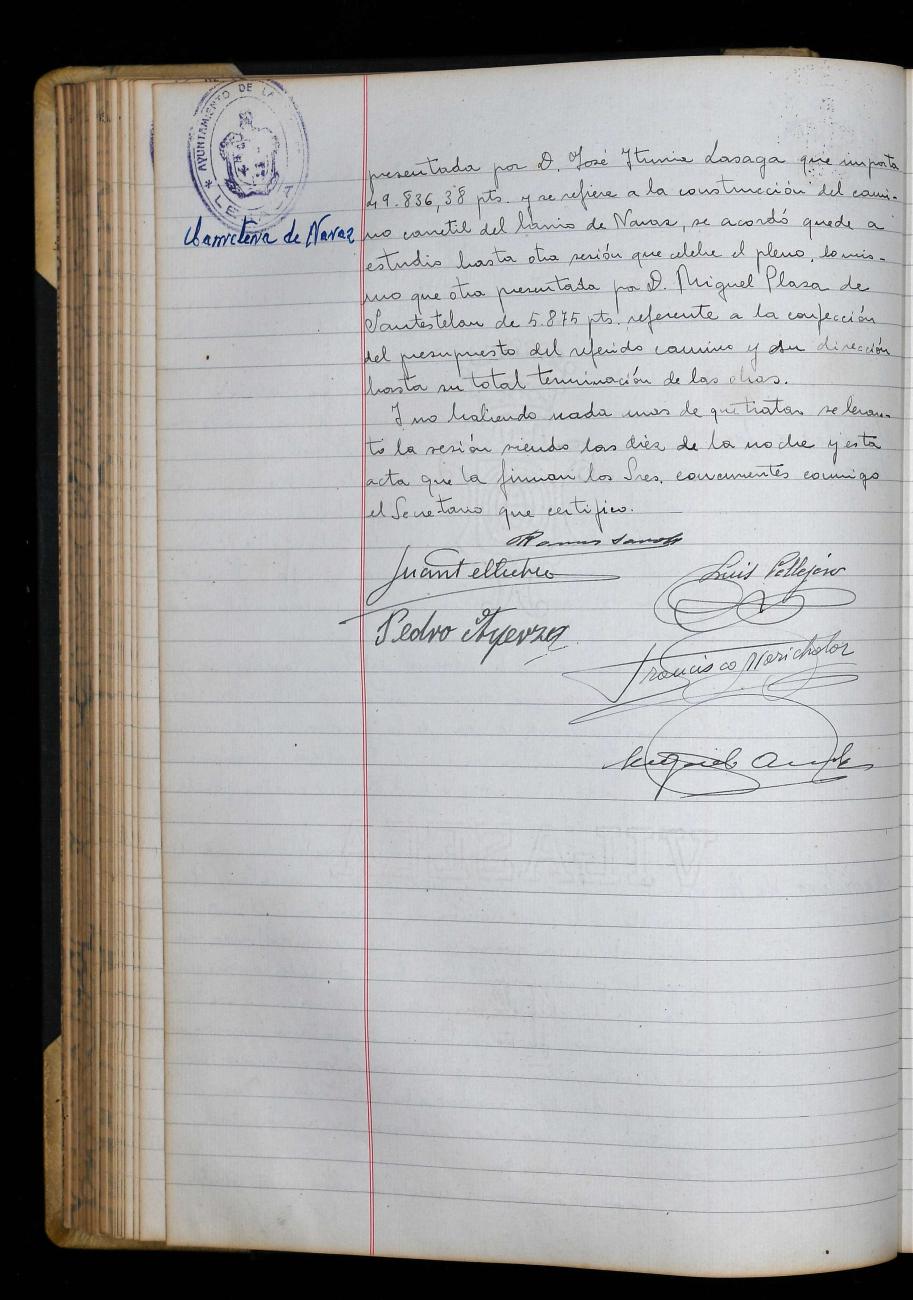 AYUNTAMIENTO DE LA
Carretera de Navaz
presentada por D. José Iturria Lasaga que importa
49.836,38 pts. y se refiere a la construcción del cami-
no carretil del barrio de Navaz, se acordó quede a
estudio hasta otra sesión que celebre el pleno, lo mis-
mo que otra presentada por D. Miguel Plaza de
Santestelan de 5.875 pts. referente a la confección
del presupuesto del referido camino y su dirección
hasta su total terminación de las obras.
Y no habiendo nada mas de que tratar se levan-
tó la sesión siendo las diez de la noche y esta
acta que la firman los Sres. concurrentes conmigo
el Secretario que certifico.
Ramon
Luis Pellejero
Pedro Ayerza
Francisco Marichalar